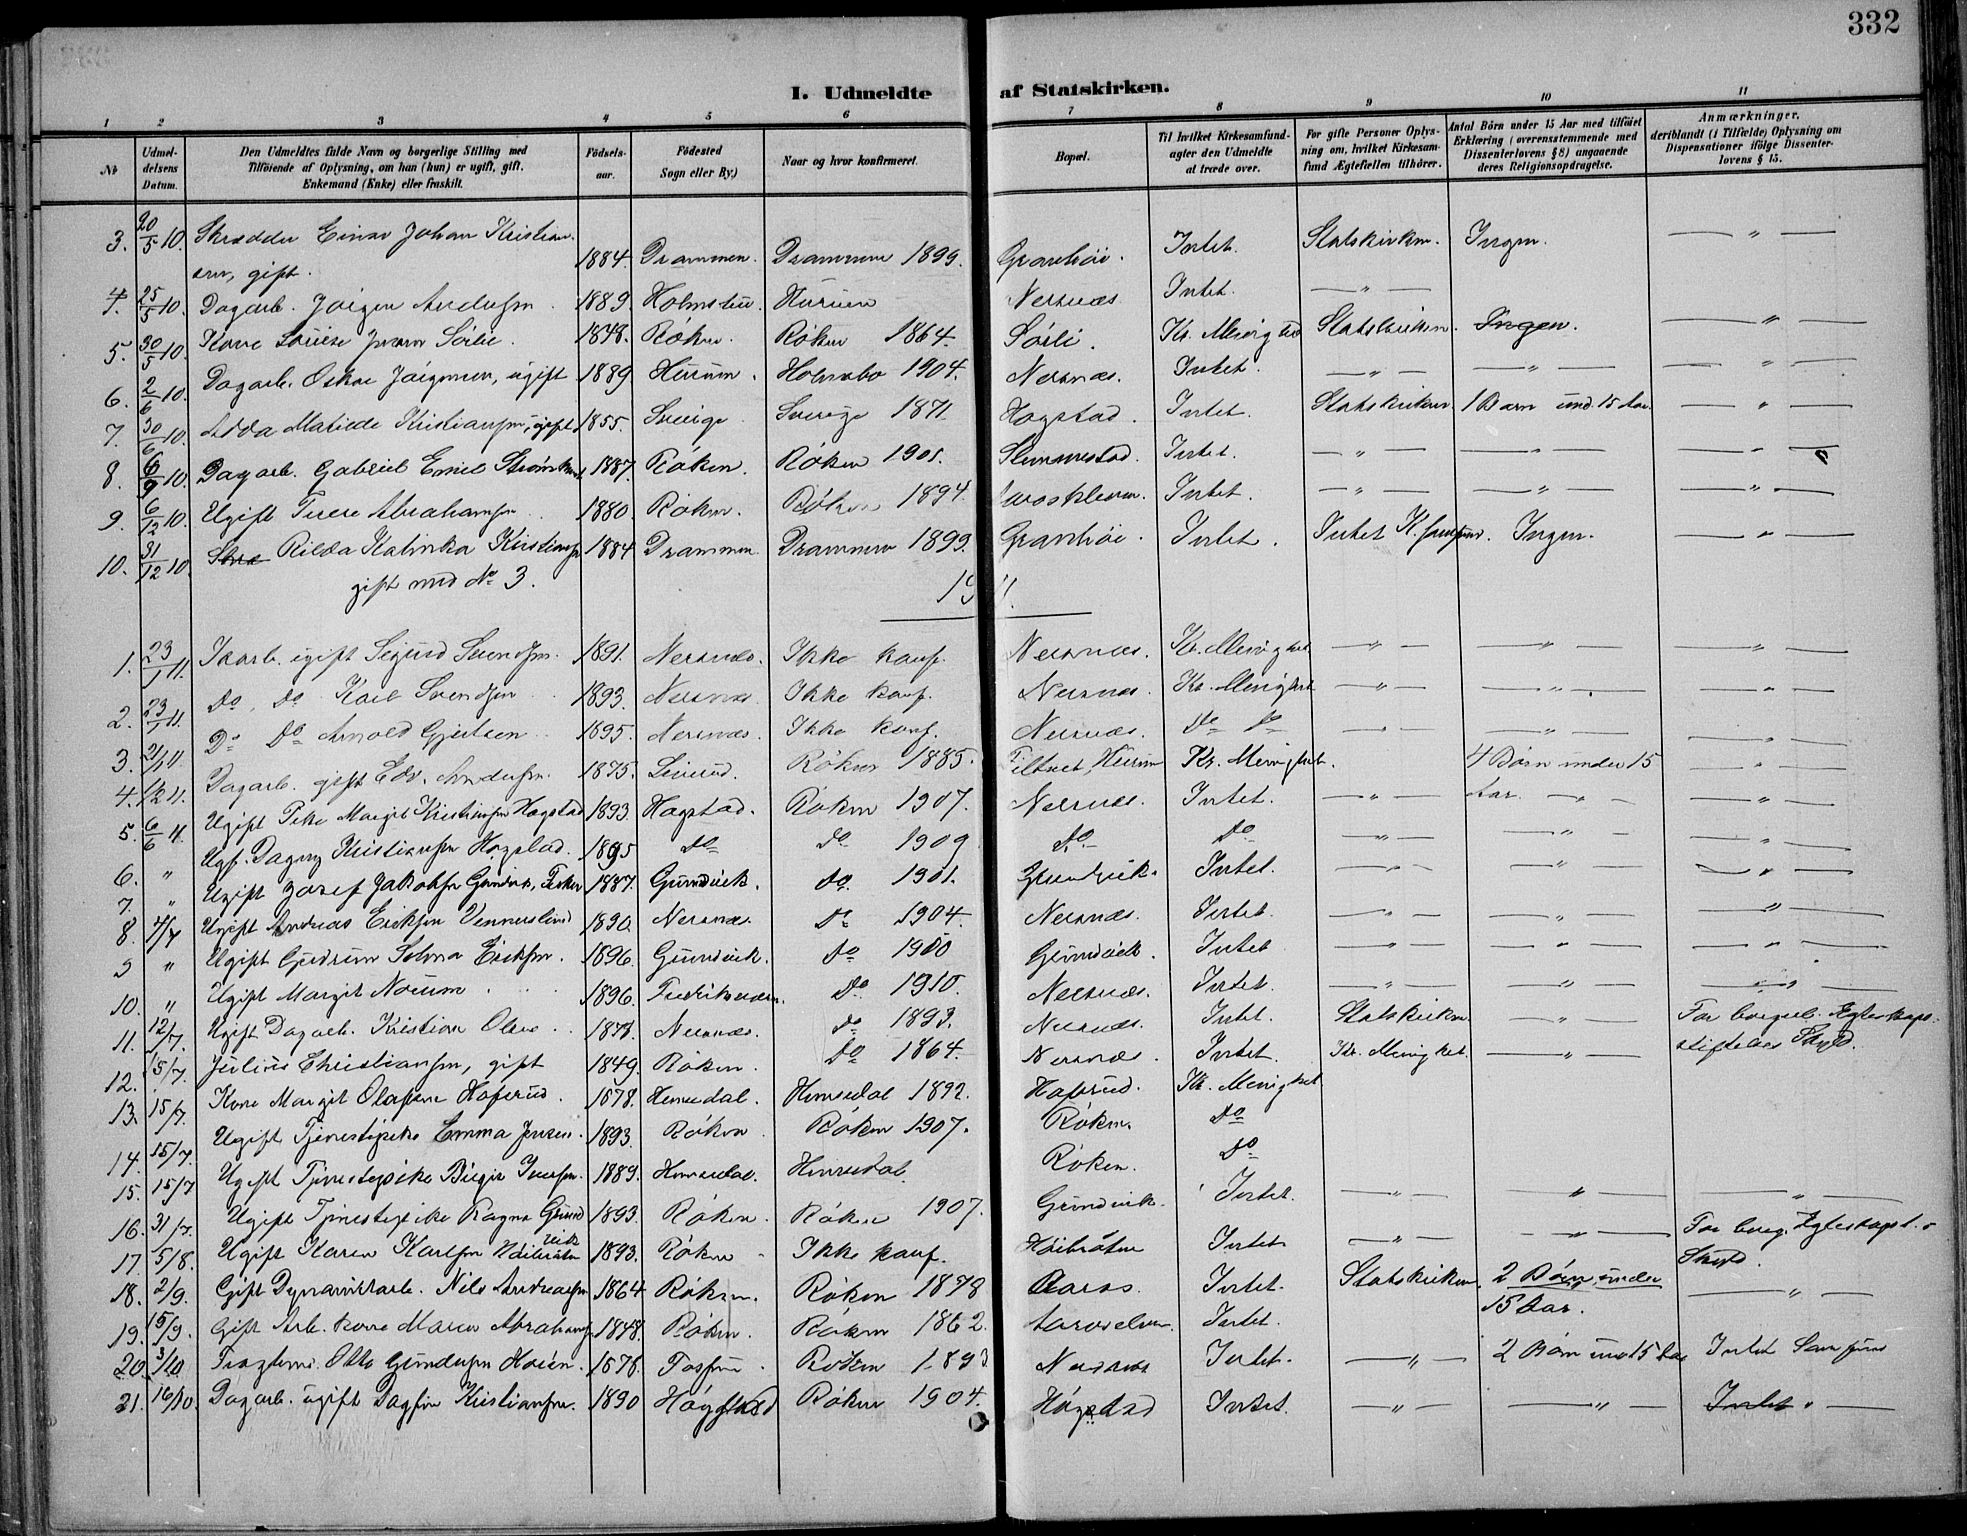 332
I. Udmeldte af Statskirken.
1 2 3 4 5 6 7 8 9 10 11
No Udmeldelsens Datum. Den Udmeldtes fulde Navn og borgerlige Stilling med Tilföiende af Oplysning, om han (hun) er ugift, gift, Enkemand (Enke) eller fraskilt. Födselsaar. Födested Sogn eller By.) Naar og hvor konfirmeret. Bopæl. Til hvilket Kirkesamfund agter den Udmeldte at træde over. For gifte Personer Oplysning om, hvilket Kirkesamfund Ægtefællen tilhörer. Antal Börn under 15 Aar med tilföiet Erklæring (overensstemmende med Dissenterlovens § 8) angaaende deres Religionsopdragelse. Anmærkninger, deriblandt (i Tilfælde) Oplysning om Dispensationer ifölge Dissenterlovens § 15.
3. 20/5 10. Skrædder Einar Johan Kristiansen, gift. 1884. Drammen. Drammen 1899. Granhöi. Intet. Statskirken. Ingen. — " —
4. 25/5 10. Dagarb. Jörgen Andersen 1889. Holmsbu. Hurum Nersnæs Intet. — " —
5. 30/5 10. Kone Louise Sörlie. 1848. Röken. Röken 1864. Sörli. Kr. Menighed Statskirken. Ingen. — " —
6. 2/6 10. Dagarb. Oskar Jörgensen, ugift 1889 Hurum. Holmsbo 1904. Nersnæs. Intet. — " — — " — — " —
7. 30/6 10. Matilde Kristiansen, gift 1855. Sverige Sverige 1871. Hogstad. Intet. Statskirken 1 Barn und. 15 Aar. — " —
8. 6/9 10. Dagarb. Gabriel Emil 1887. Röken. Röken 1901. Slemmestad. Intet. — " — — " — — " —
9. 6/12 10. Ugift Abrahamsen 1880. Röken. Röken 1894. Intet. — " — — " — — " —
10. 31/12 10. Rilda Katinka Kristiansen 1884 Drammen Drammen 1899. Granhöi. Intet. Intet K. samfund. Ingen. — " —
gift med No 3.
1911.
1. 23/1 11. ugift Sigurd Svendsen. 1891. Nersnæs. Ikke konf. Nersnæs. Kr. Menighet — " — — " — — " —
2. 23/1 11. Do, Do Karl Svendsen 1893. Nersnæs Ikke konf. Nersnæs. Kr. Menighet — " — — " — — " —
3. Do Do Arnold Gjertsen 1895. Nersnæs. Ikke konf. Nersnæs. Do Do — " — — " — — " —
4. Dagarb. gift Edv. Andersen. 1875. Röken 1885. Filtvet, Hurum Kr. Menighet. 4 Börn under 15 Aar. — " —
5. 6/6 11. Ugift Pike Margit Kristiansen Hagstad 1893. Hagstad. Röken 1907. Nersnæs. Intet. — " — — " — — " —
6. " Ugf. Dagny Kristiansen Högstad. 1895 Do Do 1909 Do Do — " — — " — — " —
7. " Ugift Josef Jakobsen Grundvik, Fisker 1887. Grundvik. Do. 1901. Grundvik. Intet. — " — — " — — " —
8. 4/7 Ugift Andreas Eriksen Vennerslund 1890. Nersnæs. Do 1904. Nersnæs. Intet. — " — — " — — " —
9 " Ugift Gudrun Selma Eriksen. 1896. Grundvik. Do Grundvik. Intet — " — — " — — " —
10. " Ugift Margit Norum 1896. Fredriksværn. Do 1910. Nersnæs. Intet. — " — — " — — " —
11. 12/7. Ugift Dagarb. Kristian Olsen. Nersnæs. Do 1893. Nersnæs. Intet. Statskirken — " — For borgerl. Ægteskaps-
stiftelses Skyld.
12. 15/7. Julius Christiansen, gift 1849. Röken. Do 1864. Nersnæs. Intet. Kr. Menighet. — " —
13. 15/7. Kone Margit Olafsen Haferud. 1878. Hemsedal. Hemsedal 1892. Haferud. Kr. Menighet
14. 15/7. Ugift Tjenestepike Emma Jensen. 1893. Röken Röken 1907. Röken. Do
15. 15/7 Ugift Tjenestepike Birgit 1889. Hemsedal. Hemsedal. Röken. Do
16. 31/7. Ugift Tjenestepike Ragna Grundvik 1893. Röken. Röken 1907. Grundvik. Intet. — " — — " — — " —
17. 5/8. Ugift Karen Karlsen Höibråten 1893. Röken Ikke konf. Höibråten Intet — " — — " — For borg. Ægteskapst.
Skyld.
18. 2/9. Gift Dynamitarb. Nils Andreasen 1864 Röken. Röken 1878 Aaros. Intet. Statskirken 2 Börn under
15 Aar. — " —
19. 15/9. Gift Arb. kone Maren Abrahams. 1848. Röken. Röken 1862. Aaroselven. Intet.
20. 3/10 Otto Gundersen Moen. 1878. Röken 1893 Nersnæs Intet. — " — 2 Börn und 15 Aar Intet Samfund
21. 16/10. Dagarb. ugift Dagfin Kristiansen. 1890 Högstad Röken 1904. Högstad Intet. — " — — " — Intet " —